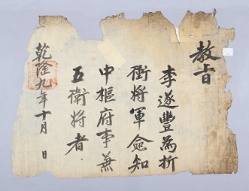 教旨
李遂豐為折
衝將軍僉知
中樞府事兼
五衛將者
乾隆九年十月　日